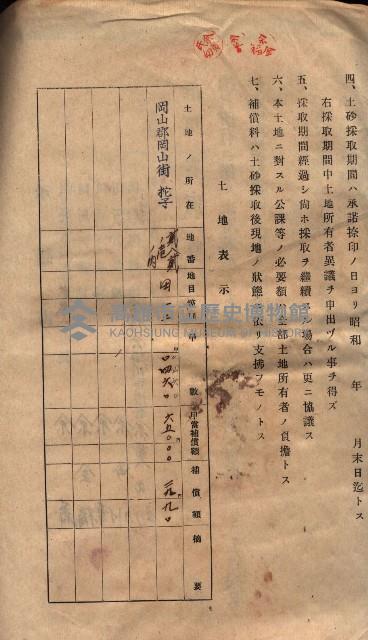 四、土砂採取期間ハ承諾捺印ノ日ヨリ昭和　年　月末日迄トス
右採取期間中土地所有者異議ヲ申出ヅル事ヲ得ズ
五、採取期間經過シ尚ホ採取ヲ繼續スル場合ハ更ニ協議ス
六、本土地ニ對スル公課等ノ必要額ハ全部土地所有者ノ負擔トス
七、補償料ハ土砂採取後現地ノ狀態ニ依リ支拂フモノトス
土地表示
土地ノ所在 地番 地目 甲 數 甲當補償額 補償額 摘要
岡山郡岡山街 田 六五〇〇〇
高雄市立歷史博物館
KAOHSIUNG MUSEUM OF HISTORY